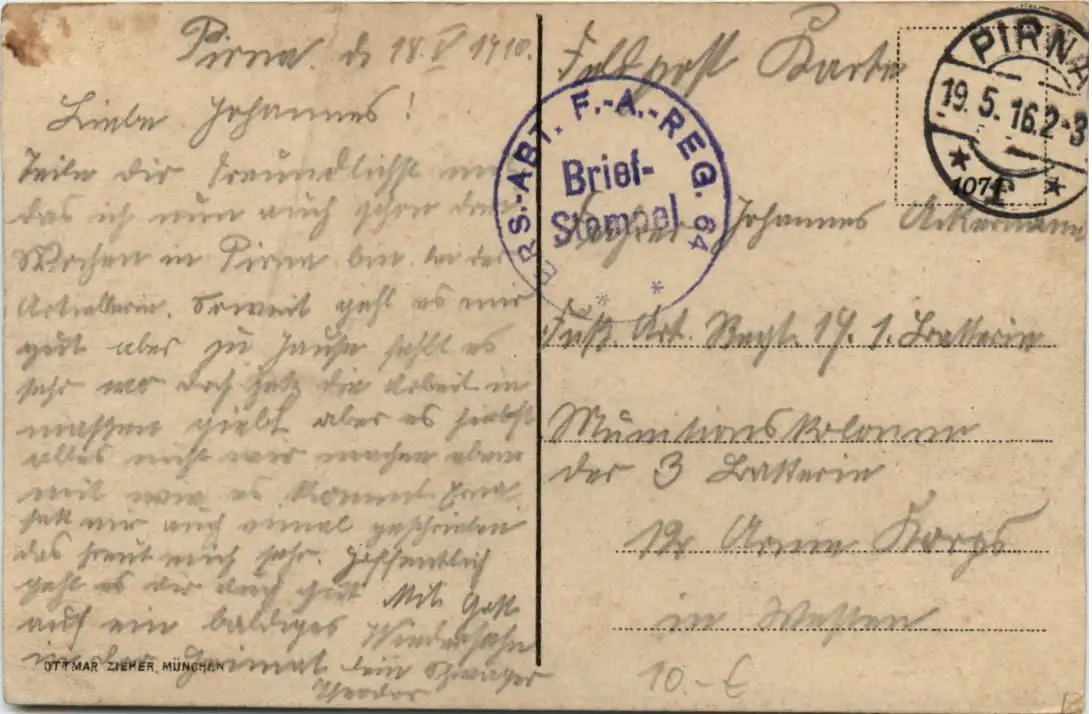 Pirna. d. 18.V 1916.
Liebe Johannes!
Teile dir Freundlichst mit
das ich nun auch schon drei
Wochen in Pirna bin bei der
Artillerie. Soweit geht es mir
gut aber zu Hause fehlt es
sehr wo doch jetz die Arbeit in
massen giebt aber es hielft
alles nicht wir machen eben
mit wie es kommt. Ernst
hatt mir auch einmal geschrieben
das freut mich sehr. Hoffentlich
geht es dir auch gut Mit Gott
auf ein baldiges Wiedersehn
in der Heimat dein Schwager
Theodor
OTTMAR ZIEHER, MÜNCHEN
Feldpost Karte
PIRNA
19.5.16.2-3
RS.-ABT. F.-A.-REG. 64
Brief-
Stempel
Johannes Ackermann
Fuß. Art. Regt. 19. 1. Batterie
Munitionskolonne
der 3 Batterie
12 Armee Korps
in Westen
10.-€